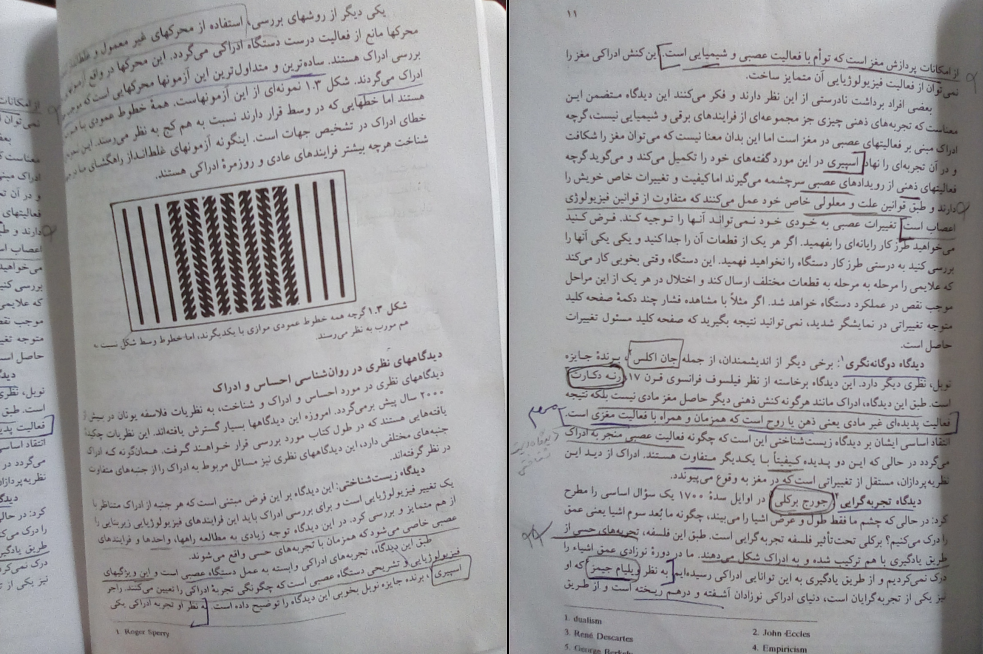 یکی دیگر از روشهای بررسی، استفاده از محرکهای غیر معمول و
محرکها مانع از فعالیت درست دستگاه ادراکی می‌گردد. این محرکها در واقع
بررسی ادراک هستند. ساده‌ترین و متداول‌ترین این آزمونها محرکهایی است که
ادراک می‌گردند. شکل ۱.۳ نمونه‌ای از این آزمونهاست. همهٔ خطوط عمودی با هم
هستند اما خطهایی که در وسط قرار دارند نسبت به هم کج به نظر می‌رسند. این
خطای ادراک در تشخیص جهات است. اینگونه آزمونهای غلط‌انداز راهگشای
شناخت هرچه بیشتر فرایندهای عادی و روزمرهٔ ادراکی هستند.
شکل ۱.۳ گرچه همه خطوط عمودی موازی با یکدیگرند، اما خطوط وسط شکل نسبت به
هم مورب به نظر می‌رسند.
دیدگاههای نظری در روان‌شناسی احساس و ادراک
دیدگاههای نظری در مورد احساس و ادراک و شناخت، به نظریات فلاسفه یونان در بیش از
۲۰۰۰ سال پیش برمی‌گردد. امروزه این دیدگاهها بسیار گسترش یافته‌اند. این نظریات
یافته‌هایی هستند که در طول کتاب مورد بررسی قرار خواهند گرفت. همان‌گونه که ادراک
جنبه‌های مختلفی دارد، این دیدگاههای نظری نیز مسائل مربوط به ادراک را از جنبه‌های متفاوت
در نظر گرفته‌اند.
دیدگاه زیست‌شناختی: این دیدگاه بر این فرض مبتنی است که هر جنبه از ادراک متناظر با
یک تغییر فیزیولوژیایی است و برای بررسی ادراک باید این فرایندهای فیزیولوژیایی زیربنایی را
از هم متمایز و بررسی کرد. در این دیدگاه توجه زیادی به مطالعه راهها، واحدها و فرایندهای
عصبی خاصی می‌شود که همزمان با تجربه‌های حسی واقع می‌شوند.
طبق این دیدگاه، تجربه‌های ادراکی وابسته به عمل دستگاه عصبی است و این ویژگیهای
فیزیولوژیایی و تشریحی دستگاه عصبی است که چگونگی تجربهٔ ادراکی را تعیین می‌کنند. راجر
اسپری، برنده جایزه نوبل بخوبی این دیدگاه را توضیح داده است. به نظر او تجربه ادراکی یکی
1. Roger Sperry
۱۱
از امکانات پردازش مغز است که توأم با فعالیت عصبی و شیمیایی است. این کنش ادراکی مغز را
نمی‌توان از فعالیت فیزیولوژیایی آن متمایز ساخت.
بعضی افراد برداشت نادرستی از این نظر دارند و فکر می‌کنند این دیدگاه متضمن این
معناست که تجربه‌های ذهنی چیزی جز مجموعه‌ای از فرایندهای برقی و شیمیایی نیست، گرچه
ادراک مبنی بر فعالیتهای عصبی در مغز است اما این بدان معنا نیست که می‌توان مغز را شکافت
و در آن تجربه‌ای را نهاد. اسپری در این مورد گفته‌های خود را تکمیل می‌کند و می‌گوید گرچه
فعالیتهای ذهنی از رویدادهای عصبی سرچشمه می‌گیرند اما کیفیت و تغییرات خاص خویش را
دارند و طبق قوانین علت و معلولی خاص خود عمل می‌کنند که متفاوت از قوانین فیزیولوژی
اعصاب است. تغییرات عصبی به خودی خود نمی‌توانند آنها را توجیه کنند. فرض کنید
می‌خواهید طرز کار رایانه‌ای را بفهمید. اگر هر یک از قطعات آن را جدا کنید و یکی یکی آنها را
بررسی کنید به درستی طرز کار دستگاه را نخواهید فهمید. این دستگاه وقتی بخوبی کار می‌کند
که علایمی را مرحله به مرحله به قطعات مختلف ارسال کند و اختلال در هر یک از این مراحل
موجب نقص در عملکرد دستگاه خواهد شد. اگر مثلاً با مشاهده فشار چند دکمهٔ صفحه کلید
متوجه تغییراتی در نمایشگر شدید، نمی‌توانید نتیجه بگیرید که صفحه کلید مسئول تغییرات
حاصل است.
دیدگاه دوگانه‌نگری۱: برخی دیگر از اندیشمندان، از جمله جان اکلس۲، برندهٔ جایزه
نوبل، نظری دیگر دارد. این دیدگاه برخاسته از نظر فیلسوف فرانسوی قرن ۱۷، رنه دکارت
است. طبق این دیدگاه، ادراک مانند هرگونه کنش ذهنی دیگر حاصل مغز مادی نیست بلکه نتیجه
فعالیت پدیده‌ای غیر مادی یعنی ذهن یا روح است که همزمان و همراه با فعالیت مغزی است.
انتقاد اساسی ایشان بر دیدگاه زیست‌شناختی این است که چگونه فعالیت عصبی منجر به ادراک
می‌گردد در حالی که این دو پدیده کیفیتاً با یکدیگر متفاوت هستند. ادراک از دید این
نظریه‌پردازان، مستقل از تغییراتی است که در مغز به وقوع می‌پیوندد.
دیدگاه تجربه‌گرایی۴: جورج برکلی۵ در اوایل سدهٔ ۱۷۰۰ یک سؤال اساسی را مطرح
کرد: در حالی که چشم ما فقط طول و عرض اشیا را می‌بیند، چگونه ما بُعد سوم اشیا یعنی عمق
را درک می‌کنیم؟ برکلی تحت‌تأثیر فلسفه تجربه‌گرایی است. طبق این فلسفه، تجربه‌های حسی از
طریق یادگیری با هم ترکیب شده و به ادراک شکل می‌دهند. ما در دورهٔ نوزادی عمق اشیاء را
درک نمی‌کردیم و از طریق یادگیری به این توانایی ادراکی رسیده‌ایم. به نظر ویلیام جیمز که او
نیز یکی از تجربه‌گرایان است، دنیای ادراکی نوزادان آشفته و درهم ریخته است و از طریق
1. dualism
2. John Eccles
3. René Descartes
4. Empiricism
5. George